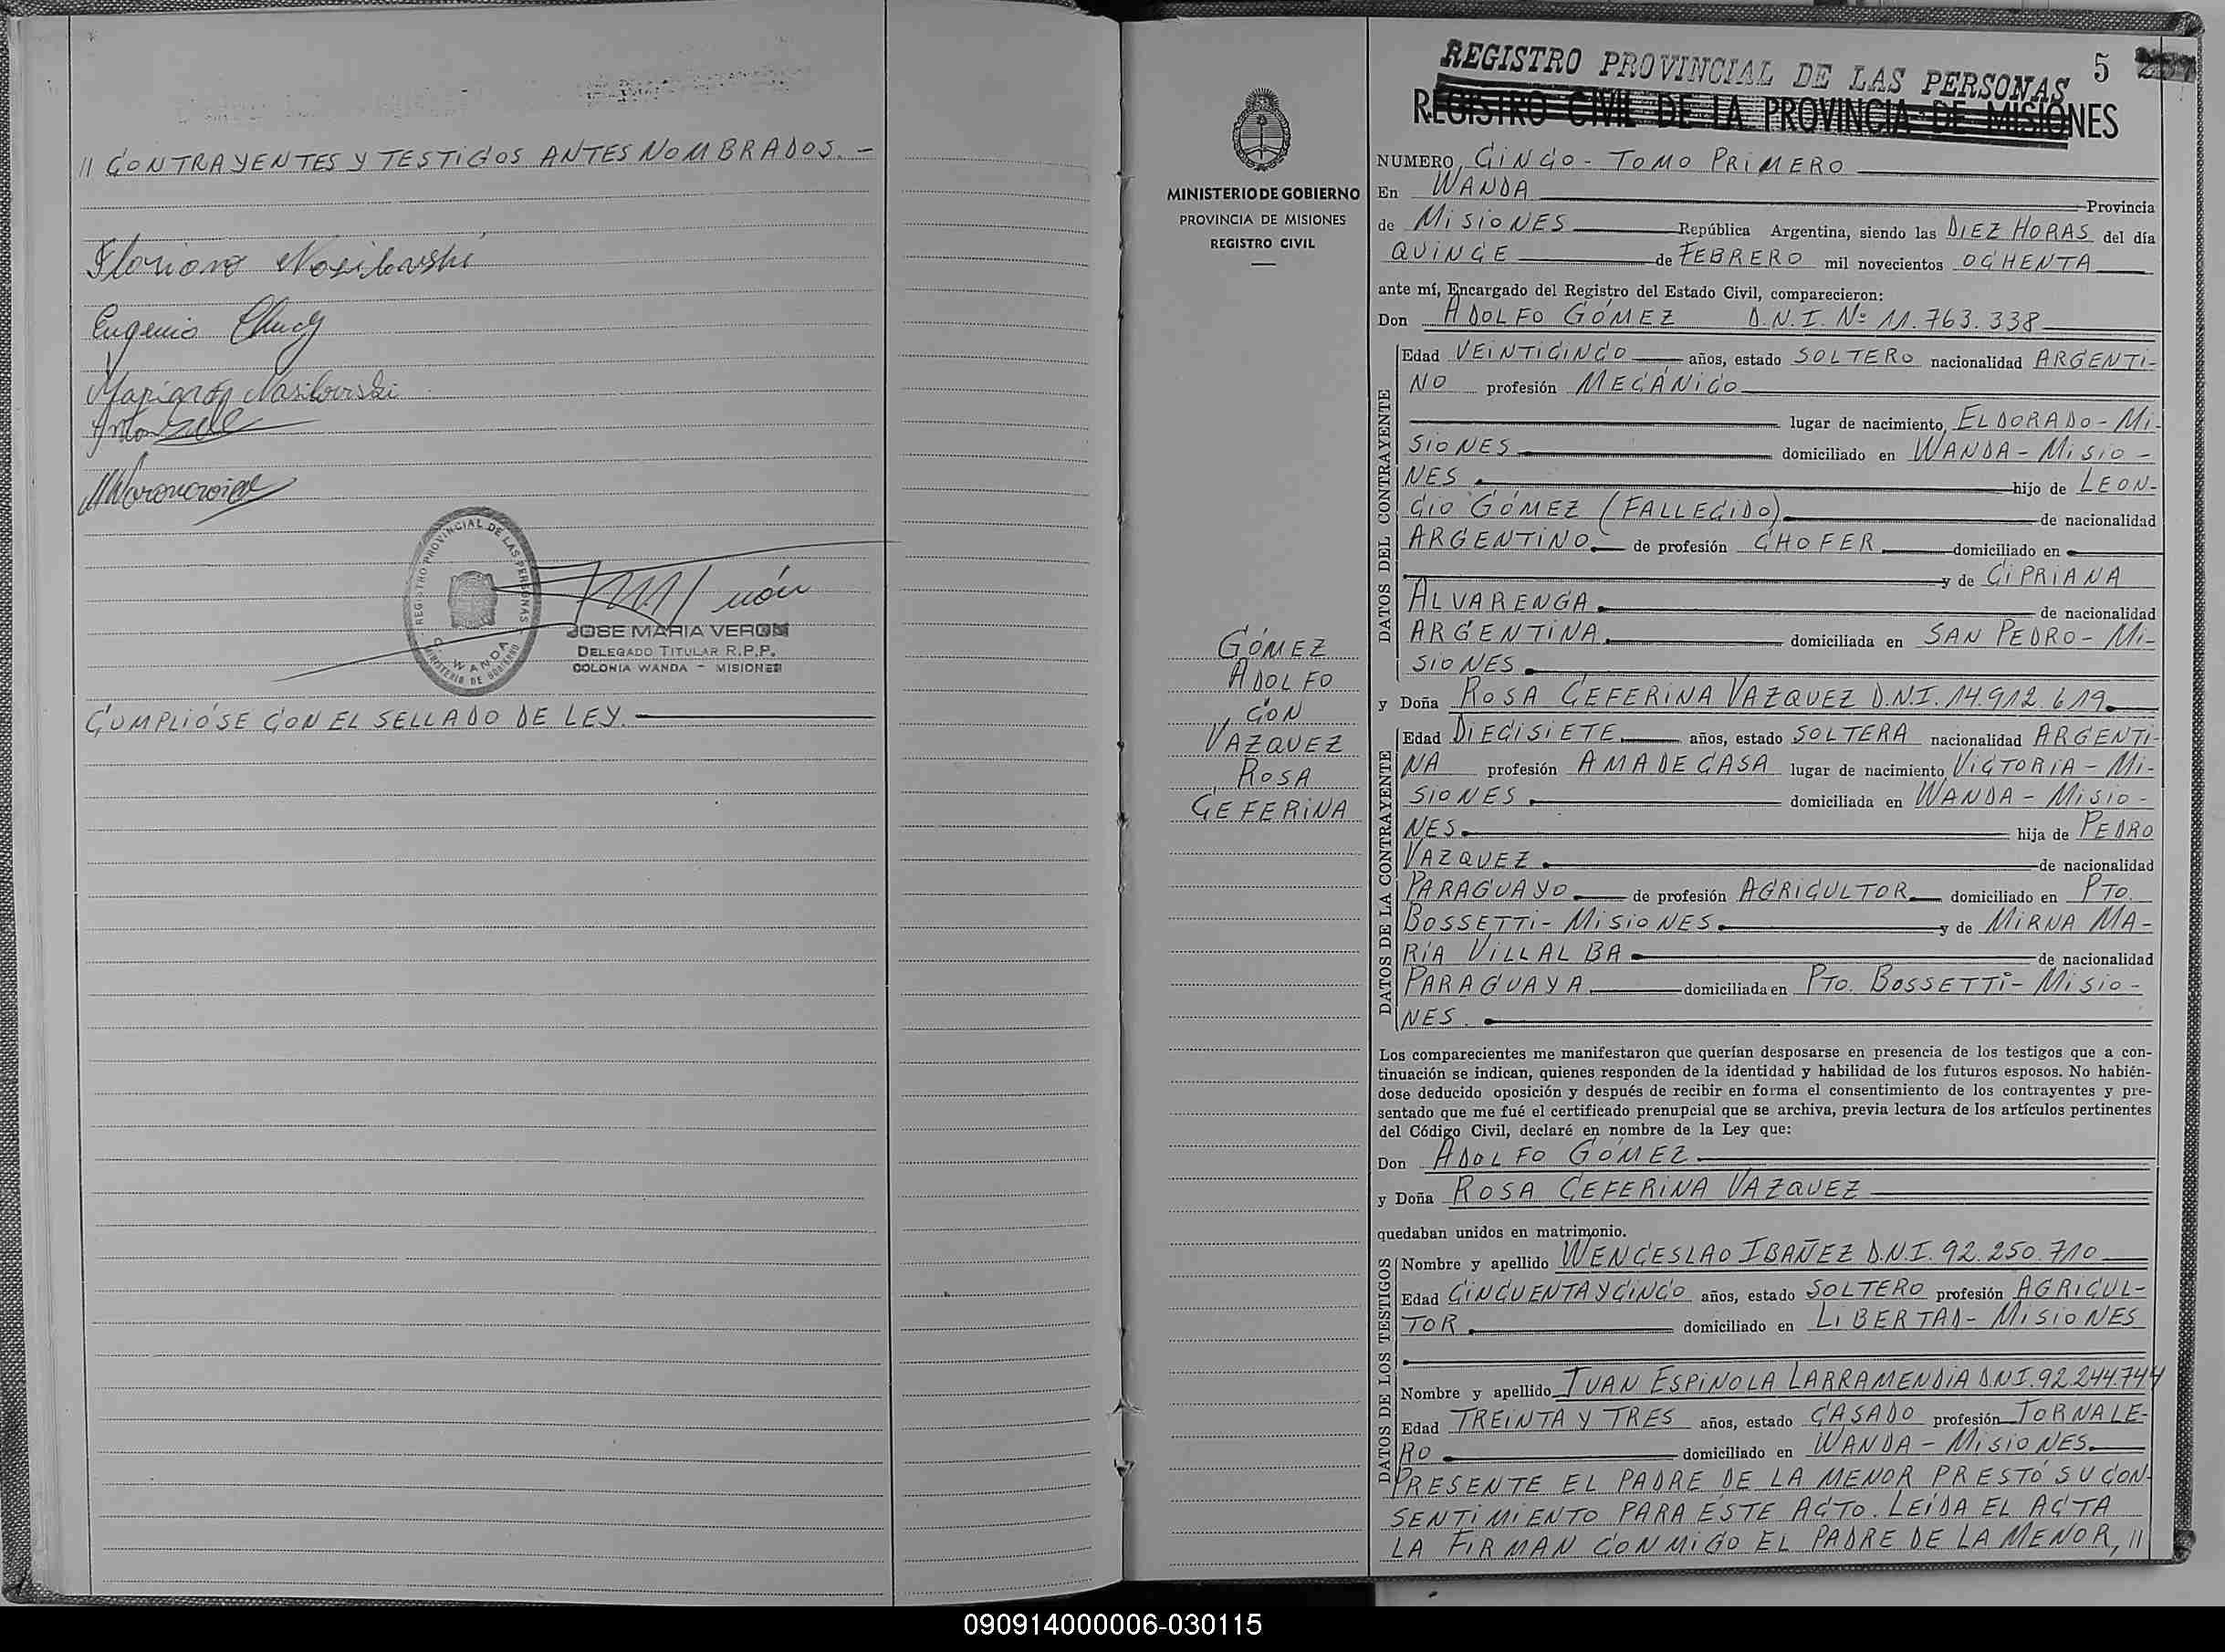 // CONTRAYENTES Y TESTIGOS ANTES NOMBRADOS. -
Eugenio
JOSE MARIA VERON
DELEGADO TITULAR R.P.P.
COLONIA WANDA - MISIONES
REGISTRO PROVINCIAL DE LAS PERSONAS
WANDA
MINISTERIO DE GOBIERNO
CUMPLIÓSE CON EL SELLADO DE LEY.
MINISTERIO DE GOBIERNO
PROVINCIA DE MISIONES
REGISTRO CIVIL
GÓMEZ
ADOLFO
CON
VAZQUEZ
ROSA
CEFERINA
REGISTRO PROVINCIAL DE LAS PERSONAS 5
REGISTRO CIVIL DE LA PROVINCIA DE MISIONES
NUMERO CINCO - TOMO PRIMERO
En WANDA Provincia
de MISIONES República Argentina, siendo las DIEZ HORAS del día
QUINCE de FEBRERO mil novecientos OCHENTA
ante mí, Encargado del Registro del Estado Civil, comparecieron:
Don ADOLFO GÓMEZ D.N.I. Nº 11.763.338
DATOS DEL CONTRAYENTE
Edad VEINTICINCO años, estado SOLTERO nacionalidad ARGENTI-
NO profesión MECÁNICO
lugar de nacimiento ELDORADO - MI-
SIONES domiciliado en WANDA - MISIO-
NES hijo de LEON-
CIO GÓMEZ (FALLECIDO) de nacionalidad
ARGENTINO de profesión CHOFER domiciliado en
y de CIPRIANA
ALVARENGA de nacionalidad
ARGENTINA domiciliada en SAN PEDRO - MI-
SIONES
y Doña ROSA CEFERINA VAZQUEZ D.N.I. 14.912.619
DATOS DE LA CONTRAYENTE
Edad DIECISIETE años, estado SOLTERA nacionalidad ARGENTI-
NA profesión AMA DE CASA lugar de nacimiento VICTORIA - MI-
SIONES domiciliada en WANDA - MISIO-
NES hija de PEDRO
VAZQUEZ de nacionalidad
PARAGUAYO de profesión AGRICULTOR domiciliado en PTO.
BOSSETTI - MISIONES y de MIRNA MA-
RÍA VILLALBA de nacionalidad
PARAGUAYA domiciliada en PTO. BOSSETTI - MISIO-
NES.
Los comparecientes me manifestaron que querían desposarse en presencia de los testigos que a con-
tinuación se indican, quienes responden de la identidad y habilidad de los futuros esposos. No habién-
dose deducido oposición y después de recibir en forma el consentimiento de los contrayentes y pre-
sentado que me fué el certificado prenupcial que se archiva, previa lectura de los artículos pertinentes
del Código Civil, declaré en nombre de la Ley que:
Don ADOLFO GÓMEZ
y Doña ROSA CEFERINA VAZQUEZ
quedaban unidos en matrimonio.
DATOS DE LOS TESTIGOS
Nombre y apellido WENCESLAO IBAÑEZ D.N.I. 92.250.710
Edad CINCUENTA Y CINCO años, estado SOLTERO profesión AGRICUL-
TOR domiciliado en LIBERTAD - MISIONES
Nombre y apellido JUAN ESPINOLA LARRAMENDIA D.N.I. 92.244.744
Edad TREINTA Y TRES años, estado CASADO profesión JORNALE-
RO domiciliado en WANDA - MISIONES.
PRESENTE EL PADRE DE LA MENOR PRESTÓ SU CON-
SENTIMIENTO PARA ÉSTE ACTO. LEÍDA EL ACTA
LA FIRMAN CONMIGO EL PADRE DE LA MENOR, //
090914000006-030115